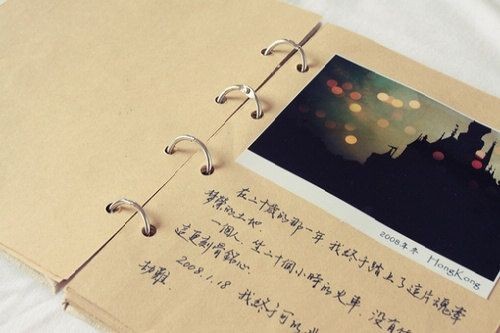 2008年冬 HongKong
在二十歲的那一年 我終于踏上了這片魂牽
夢縈的土地.
一個人.坐二十個小時的火車.没有
這逗刻骨銘心.
2008.1.18 我終于可以
劫難.